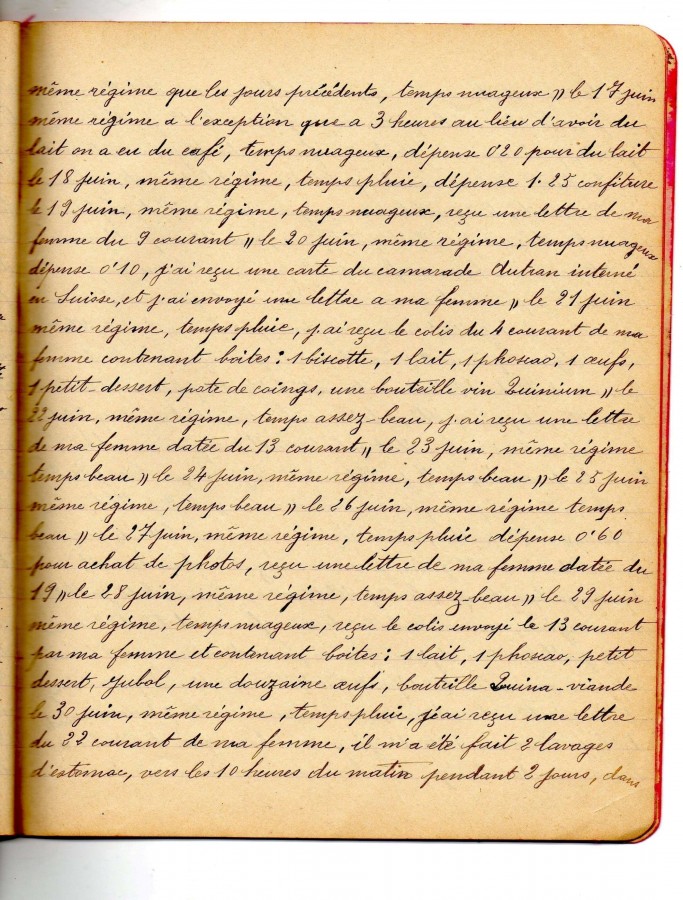 même régime que les jours précédents, temps nuageux 〃 le 17 juin
même régime a l'exception que a 3 heures au lieu d'avoir du
lait on a eu du café, temps nuageux, dépense 0'20 pour du lait
le 18 juin, même régime, temps pluie, dépense 1.25 confiture
le 19 juin, même régime, temps nuageux, reçu une lettre de ma
femme du 9 courant 〃 le 20 juin, même régime, temps nuageux
dépense 0'10, j'ai reçu une carte du camarade Autran interné
en Suisse, et j'ai envoyé une lettre a ma femme 〃 le 21 juin
même régime, temps pluie, j'ai reçu le colis du 4 courant de ma
femme contenant boites : 1 biscotte, 1 lait, 1 phoscao, 1 œufs,
1 petit-dessert, pate de coings, une bouteille vin Quinium 〃 le
22 juin, même régime, temps assez-beau, j'ai reçu une lettre
de ma femme datée du 13 courant 〃 le 23 juin, même régime
temps beau 〃 le 24 juin, même régime, temps beau 〃 le 25 juin
même régime, temps beau 〃 le 26 juin, même régime temps
beau 〃 le 27 juin, même régime, temps pluie dépense 0'60
pour achat de photos, reçu une lettre de ma femme datée du
19 〃 le 28 juin, même régime, temps assez-beau 〃 le 29 juin
même régime, temps nuageux, reçu le colis envoyé le 13 courant
par ma femme et contenant boites : 1 lait, 1 phoscao, petit
dessert, Jubol, une douzaine œufs, bouteille Quina-viande
le 30 juin, même régime, temps pluie, j'ai reçu une lettre
du 22 courant de ma femme, il m'a été fait 2 lavages
d'estomac, vers les 10 heures du matin pendant 2 jours, dans